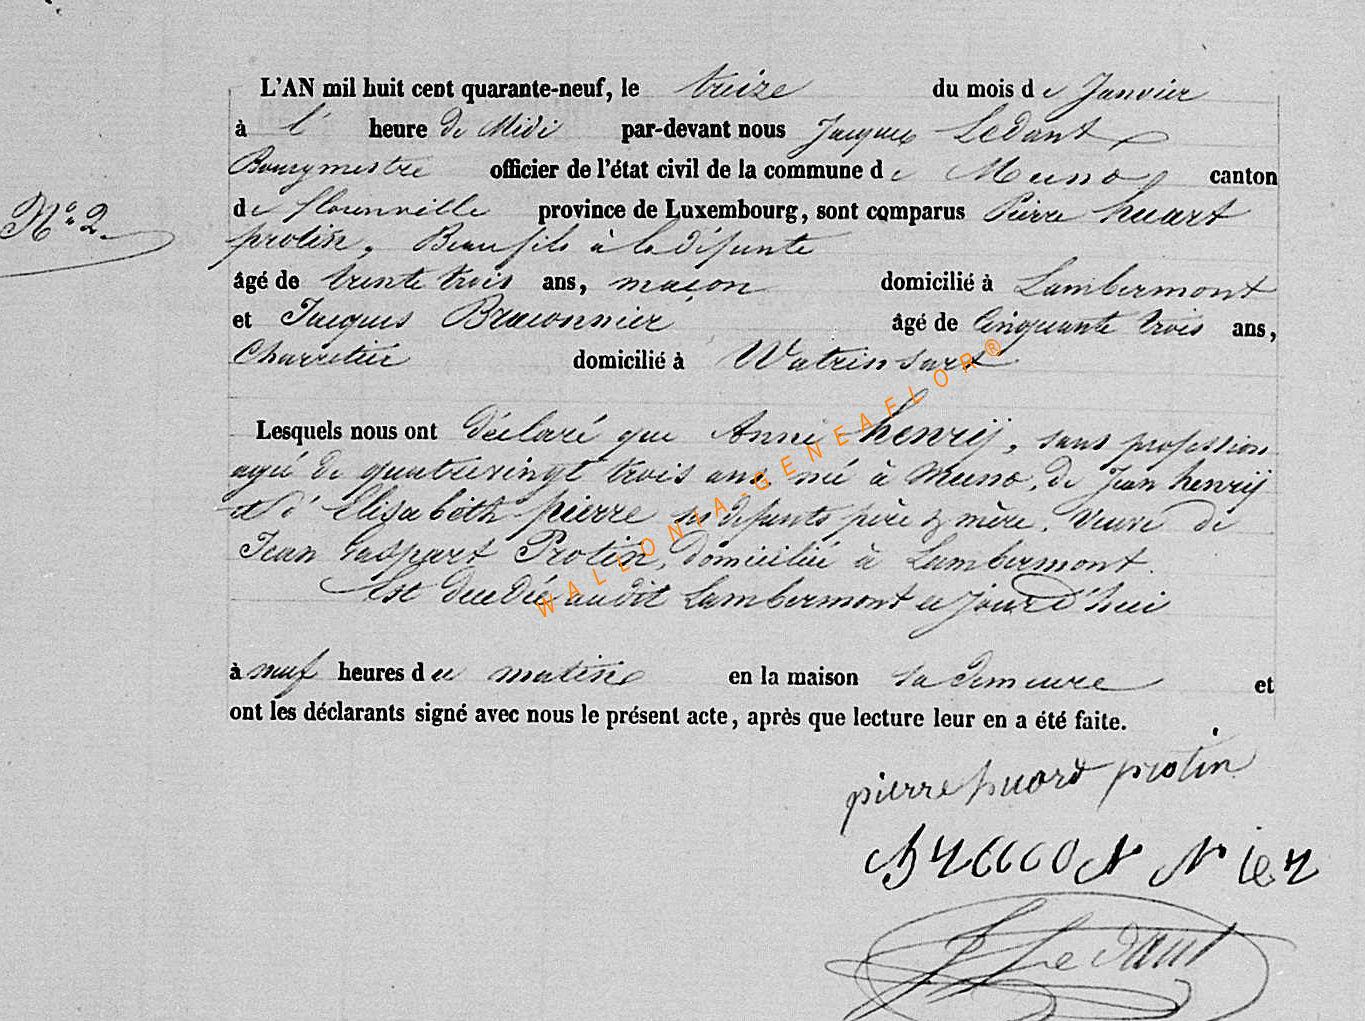 L'AN mil huit cent quarante-neuf, le treize du mois de Janvier
à l' heure de Midi par-devant nous Jacques Ledant
Bourgmestre officier de l'état civil de la commune de Muno canton
N° 2.
de florenville province de Luxembourg, sont comparus Pierre huart
protin, Beau fils à la défunte
âgé de trente trois ans, maçon domicilié à Lambermont
et Jacques Braconnier âgé de Cinquante trois ans,
Charretier domicilié à Watrinsart
Lesquels nous ont déclaré que Anne henrij, sans profession
agé de quatrevingt trois ans, né à Muno, de Jean henrij
et d' Elisabeth pierre ses défunts père & mère. Veuve de
Jean Gaspart Protin, domicilié à Lambermont.
Est décédée audit Lambermont ce jourd'hui
à neuf heures du matin en la maison sa demeure et
ont les déclarants signé avec nous le présent acte, après que lecture leur en a été faite.
pierre huart protin
Braconnier
J Ledant
WALLONIA-GENEAFLOR®